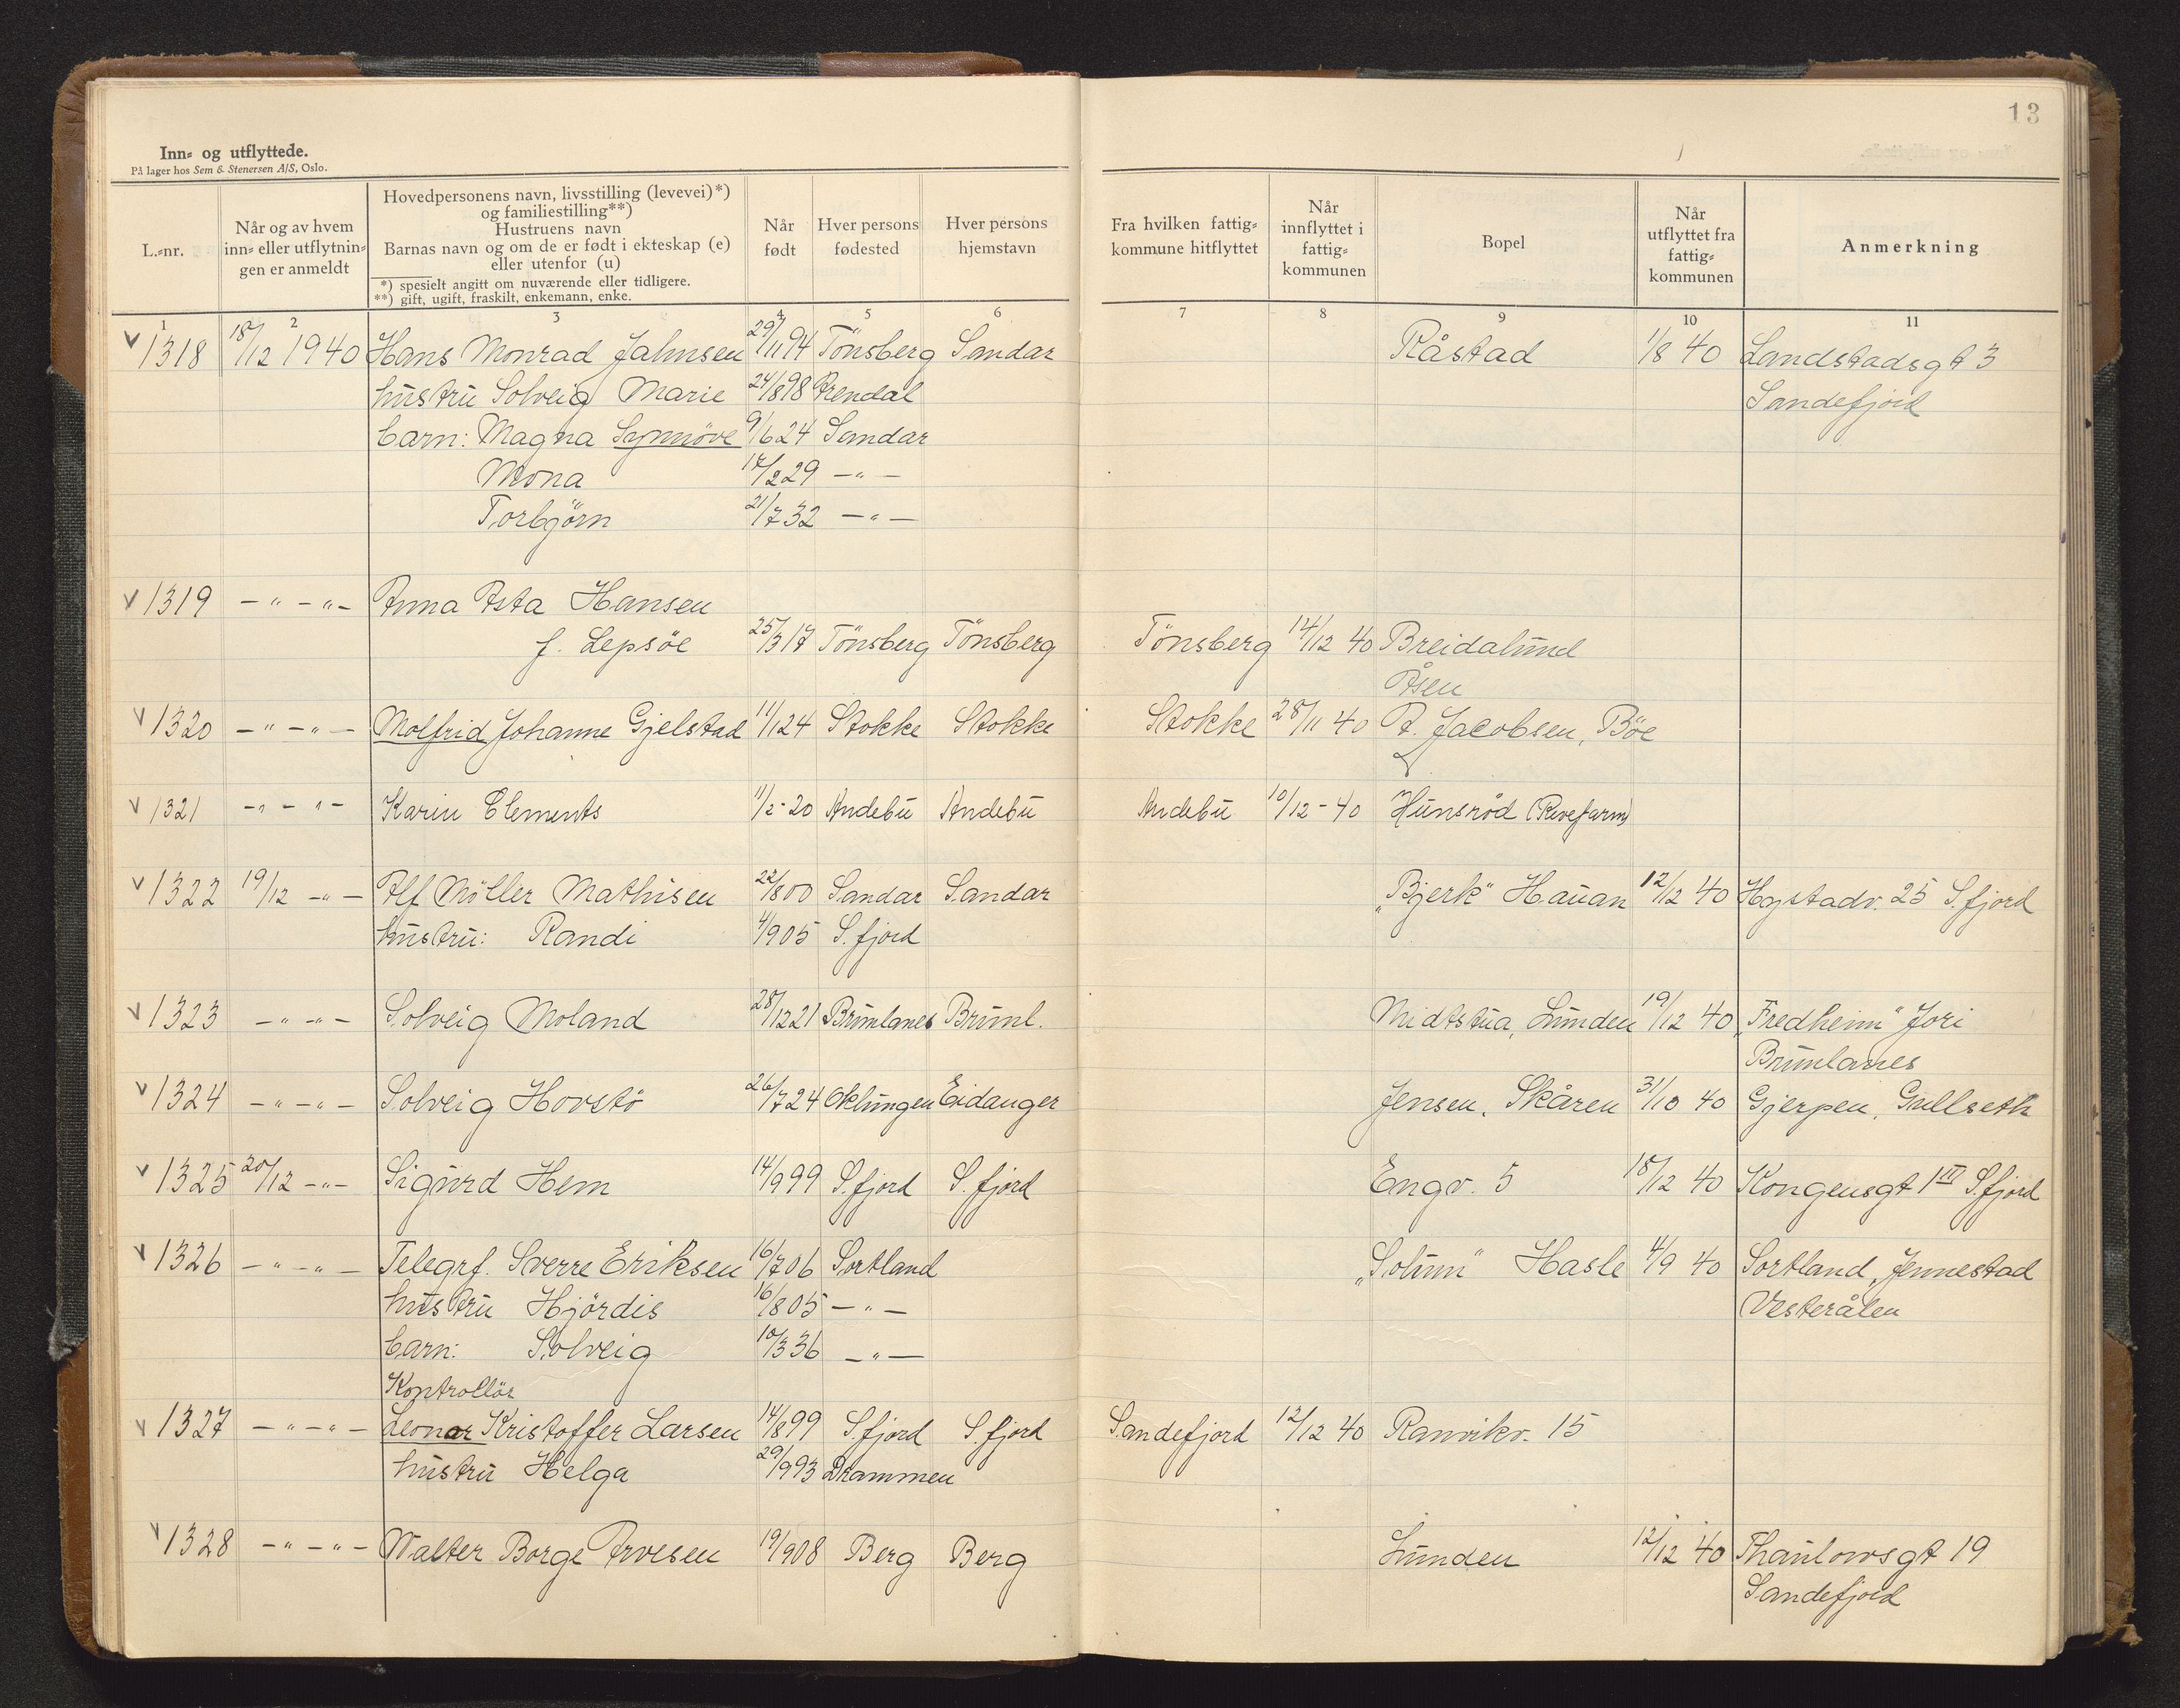 13
Inn- og utflyttede.
På lager hos Sem & Stenersen A/S, Oslo.
L.-nr.
Når og av hvem inn- eller utflytningen er anmeldt
Hovedpersonens navn, livsstilling (levevei)*)
og familiestilling**)
Hustruens navn
Barnas navn og om de er født i ekteskap (e)
eller utenfor (u)
*) spesielt angitt om nuværende eller tidligere.
**) gift, ugift, fraskilt, enkemann, enke.
Når født
Hver persons fødested
Hver persons hjemstavn
Fra hvilken fattigkommune hitflyttet
Når innflyttet i fattigkommunen
Bopel
Når utflyttet fra fattigkommunen
Anmerkning
1 2 3 4 5 6 7 8 9 10 11
v 1318 18/12 1940 Hans Monrad Jahnsen 29/11 94 Tönsberg Sandar Råstad 1/8 40 Landstadsgt 3
hustru Solveig Marie 24/8 98 Arendal Sandefjord
barn: Magna Synnöve 9/6 24 Sandar
Mona 17/2 29 -"-
Torbjörn 21/7 32 -"-
v 1319 -"-"- Anna Asta Hansen
f. Lepsöe 25/3 17 Tönsberg Tönsberg Tönsberg 14/12 40 Breidalund
Åsen
v 1320 -"-"- Molfrid Johanne Gjelstad 11/1 24 Stokke Stokke Stokke 28/11 40 A. Jacobsen, Böe
v 1321 -"-"- Karin Clements 11/2-20 Andebu Andebu Andebu 10/12-40 Hunsröd (Revefarm)
v 1322 19/12 -"- Alf Möller Mathisen 22/8 00 Sandar Sandar "Bjerk" Hauan 12/12 40 Hystadv. 25 S.fjord
hustru: Randi 4/9 05 S.fjord
v 1323 -"-"- Solveig Moland 28/12 21 Brunlanes Brunl. Midtstua, Lunden 19/12 40 "Fredheim" Jori
Brunlanes
v 1324 -"-"- Solveig Hovstö 26/7 24 Oklungen Eidanger Jensen, Skåren 31/10 40 Gjerpen, Gullseth
v 1325 20/12 -"- Sigurd Hem 14/9 99 S.fjord S.fjord Engv. 5 18/12 40 Kongensgt 1 III S.fjord
v 1326 -"-"- Telegrf. Sverre Eriksen 16/7 06 Sortland "Solum" Hasle 4/9 40 Sortland, Jennestad
hustru Hjördis 16/8 05 -"- Vesterålen
barn: Solveig 10/3 36 -"-
Kontrollör
v 1327 -"-"- Leonar Kristoffer Larsen 14/8 99 S.fjord S.fjord Sandefjord 12/12 40 Ranvikv. 15
hustru Helga 29/9 93 Drammen
v 1328 -"-"- Walter Borge Arvesen 19/9 08 Berg Berg Lunden 12/12 40 Thaulowsgt 19
Sandefjord